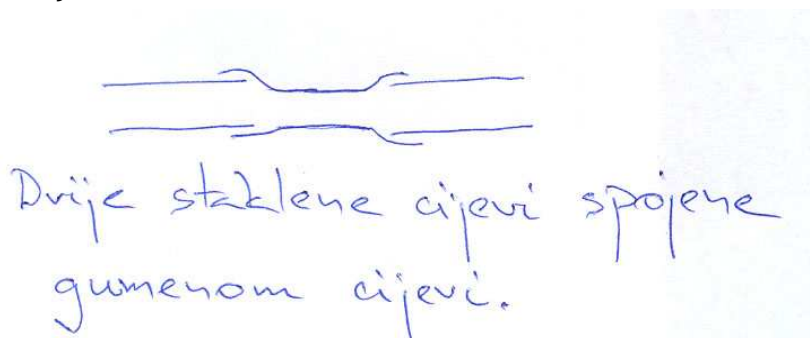 Dvije staklene cijevi spojene
gumenom cijevi.